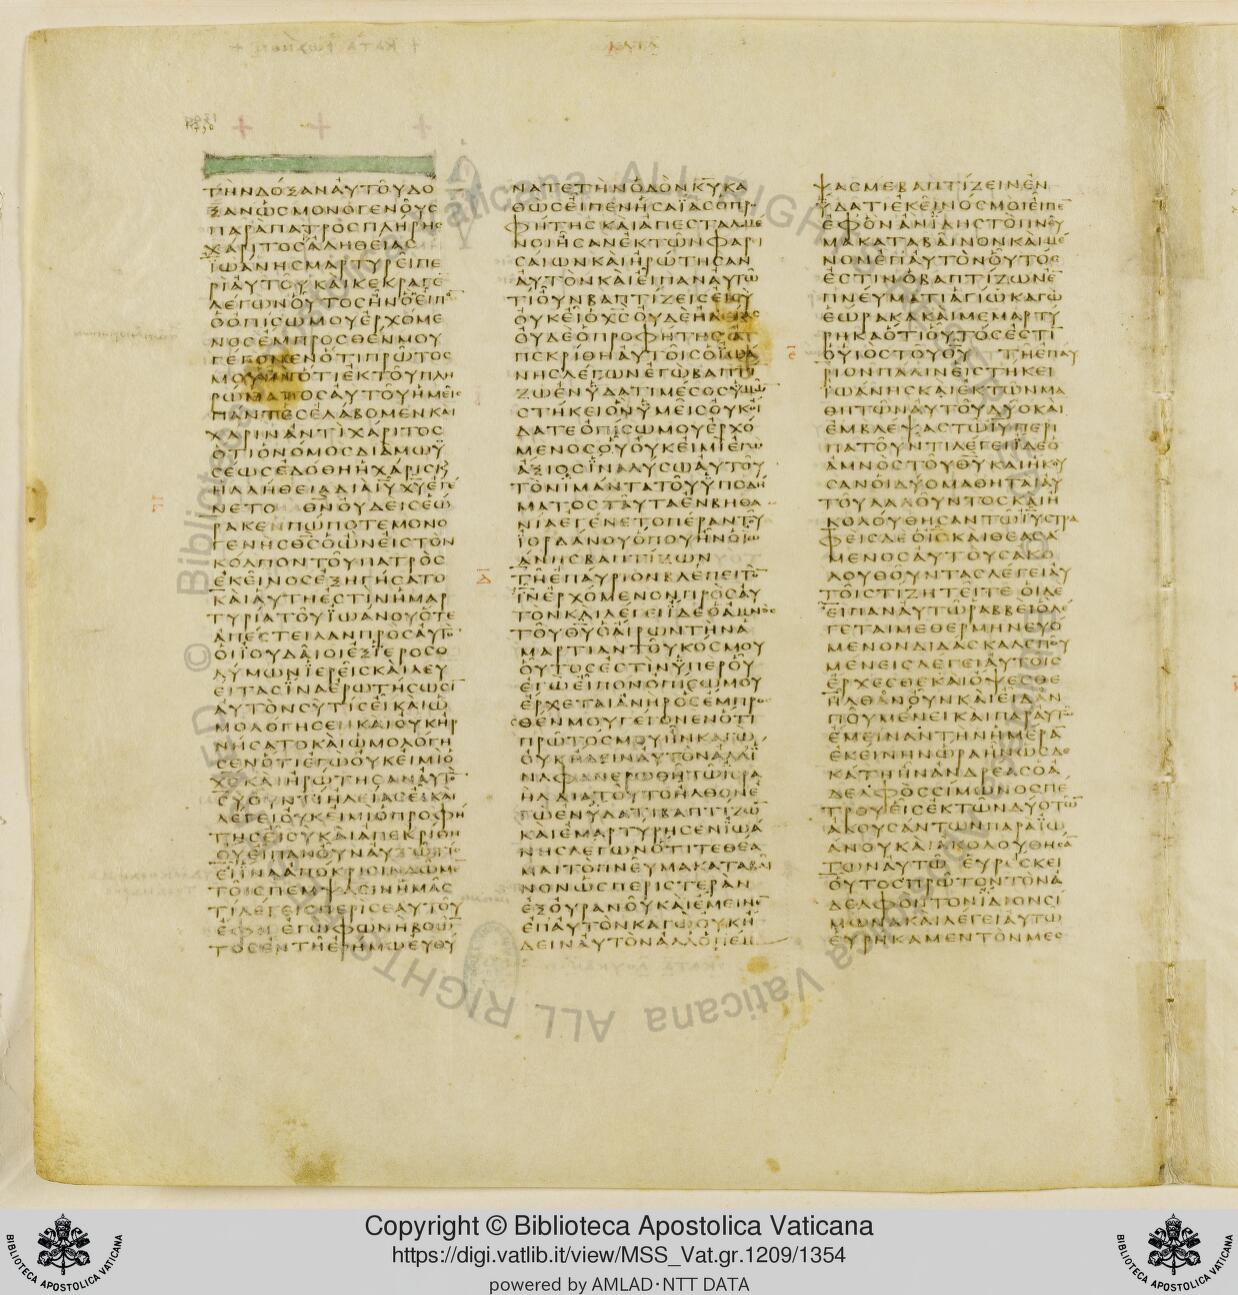 ΤΗΝΔΟΞΑΝΑΥΤΟΥΔΟ
ΞΑΝΩΣΜΟΝΟΓΕΝΟΥΣ
ΠΑΡΑΠΑΤΡΟΣΠΛΗΡΗΣ
ΧΑΡΙΤΟΣΑΛΗΘΕΙΑΣ
ΙΩΑΝΗΣΜΑΡΤΥΡΕΙΠΕ
ΡΙΑΥΤΟΥΚΑΙΚΕΚΡΑΓΕ
ΛΕΓΩΝΟΥΤΟΣΗΝΟΕΙΠΩ
ΟΟΠΙΣΩΜΟΥΕΡΧΟΜΕ
ΝΟΣΕΜΠΡΟΣΘΕΝΜΟΥ
ΓΕΓΟΝΕΝΟΤΙΠΡΩΤΟΣ
ΜΟΥΗΝΟΤΙΕΚΤΟΥΠΛΗ
ΡΩΜΑΤΟΣΑΥΤΟΥΗΜΕΙΣ
ΠΑΝΤΕΣΕΛΑΒΟΜΕΝΚΑΙ
ΧΑΡΙΝΑΝΤΙΧΑΡΙΤΟΣ
ΟΤΙΟΝΟΜΟΣΔΙΑΜΩΥ
ΣΕΩΣΕΔΟΘΗΗΧΑΡΙΣΚ
ΗΑΛΗΘΕΙΑΔΙΑΙΥΧΥΕΓΕ
ΝΕΤΟ ΘΝΟΥΔΕΙΣΕΩ
ΡΑΚΕΝΠΩΠΟΤΕΜΟΝΟ
ΓΕΝΗΣΘΣΟΩΝΕΙΣΤΟΝ
ΚΟΛΠΟΝΤΟΥΠΑΤΡΟΣ
ΕΚΕΙΝΟΣΕΞΗΓΗΣΑΤΟ
ΚΑΙΑΥΤΗΕΣΤΙΝΗΜΑΡ
ΤΥΡΙΑΤΟΥΙΩΑΝΟΥΟΤΕ
ΑΠΕΣΤΕΙΛΑΝΠΡΟΣΑΥΤΟ
ΟΙΙΟΥΔΑΙΟΙΕΞΙΕΡΟΣΟ
ΛΥΜΩΝΙΕΡΕΙΣΚΑΙΛΕΥ
ΕΙΤΑΣΙΝΑΕΡΩΤΗΣΩΣΙ
ΑΥΤΟΝΣΥΤΙΣΕΙΚΑΙΩ
ΜΟΛΟΓΗΣΕΝΚΑΙΟΥΚΗΡ
ΝΗΣΑΤΟΚΑΙΩΜΟΛΟΓΗ
ΣΕΝΟΤΙΕΓΩΟΥΚΕΙΜΙΟ
ΧΣΚΑΙΗΡΩΤΗΣΑΝΑΥΤΟ
ΣΥΟΥΝΤΙΗΛΕΙΑΣΕΙΚΑΙ
ΛΕΓΕΙΟΥΚΕΙΜΙΟΠΡΟΦΗ
ΤΗΣΕΙΣΥΚΑΙΑΠΕΚΡΙΘΗ
ΟΥΕΙΠΑΝΟΥΝΑΥΤΩΤΙΣ
ΕΙΙΝΑΑΠΟΚΡΙΣΙΝΔΩΜΕ
ΤΟΙΣΠΕΜΨΑΣΙΝΗΜΑΣ
ΤΙΛΕΓΕΙΣΠΕΡΙΣΕΑΥΤΟΥ
ΕΦΗΕΓΩΦΩΝΗΒΟΩ
ΤΟΣΕΝΤΗΕΡΗΜΩΕΥΘΥ
ΝΑΤΕΤΗΝΟΔΟΝΚΥΚΑ
ΘΩΣΕΙΠΕΝΗΣΑΙΑΣΟΠΡΟ
ΦΗΤΗΣΚΑΙΑΠΕΣΤΑΛΜΕ
ΝΟΙΗΣΑΝΕΚΤΩΝΦΑΡΙ
ΣΑΙΩΝΚΑΙΗΡΩΤΗΣΑΝ
ΑΥΤΟΝΚΑΙΕΙΠΑΝΑΥΤΩ
ΤΙΟΥΝΒΑΠΤΙΖΕΙΣΕΙΣΥ
ΟΥΚΕΙΟΧΣΟΥΔΕΗΛΕΙΑΣ
ΟΥΔΕΟΠΡΟΦΗΤΗΣ
ΠΕΚΡΙΘΗΑΥΤΟΙΣΟΙΩΑ
ΝΗΣΛΕΓΩΝΕΓΩΒΑΠΤΙ
ΖΩΕΝΥΔΑΤΙΜΕΣΟΣΥΜΩ
ΣΤΗΚΕΙΟΝΥΜΕΙΣΟΥΚΟΙ
ΔΑΤΕΟΠΙΣΩΜΟΥΕΡΧΟ
ΜΕΝΟΣΟΥΟΥΚΕΙΜΙΕΓΩ
ΑΞΙΟΣΙΝΑΛΥΣΩΑΥΤΟΥ
ΤΟΝΙΜΑΝΤΑΤΟΥΥΠΟΔΗ
ΜΑΤΟΣΤΑΥΤΑΕΝΒΗΘΑ
ΝΙΑΕΓΕΝΕΤΟΠΕΡΑΝΤΟΥ
ΙΟΡΔΑΝΟΥΟΠΟΥΗΝΟΙΩ
ΑΝΗΣΒΑΠΤΙΖΩΝ
ΤΗΕΠΑΥΡΙΟΝΒΛΕΠΕΙΤΟ
ΙΝΕΡΧΟΜΕΝΟΝΠΡΟΣΑΥ
ΤΟΝΚΑΙΛΕΓΕΙΙΔΕΟΑΜΝΟΣ
ΤΟΥΘΥΟΑΙΡΩΝΤΗΝΑ
ΜΑΡΤΙΑΝΤΟΥΚΟΣΜΟΥ
ΟΥΤΟΣΕΣΤΙΝΥΠΕΡΟΥ
ΕΓΩΕΙΠΟΝΟΠΙΣΩΜΟΥ
ΕΡΧΕΤΑΙΑΝΗΡΟΣΕΜΠΡΟ
ΣΘΕΝΜΟΥΓΕΓΟΝΕΝΟΤΙ
ΠΡΩΤΟΣΜΟΥΗΝΚΑΓΩ
ΟΥΚΗΔΕΙΝΑΥΤΟΝΑΛΛΙ
ΝΑΦΑΝΕΡΩΘΗΤΩΙΣΡΑ
ΗΛΔΙΑΤΟΥΤΟΗΛΘΟΝΕ
ΓΩΕΝΥΔΑΤΙΒΑΠΤΙΖΩ
ΚΑΙΕΜΑΡΤΥΡΗΣΕΝΙΩΑ
ΝΗΣΛΕΓΩΝΟΤΙΤΕΘΕΑ
ΜΑΙΤΟΠΝΕΥΜΑΚΑΤΑΒΑΙ
ΝΟΝΩΣΠΕΡΙΣΤΕΡΑΝ
ΕΞΟΥΡΑΝΟΥΚΑΙΕΜΕΙΝΕ
ΕΠΑΥΤΟΝΚΑΓΩΟΥΚΗ
ΔΕΙΝΑΥΤΟΝΑΛΛΟΠΕΜ
ΨΑΣΜΕΒΑΠΤΙΖΕΙΝΕΝ
ΥΔΑΤΙΕΚΕΙΝΟΣΜΟΙΕΙΠΕ
ΕΦΟΝΑΝΙΔΗΣΤΟΠΝΕΥ
ΜΑΚΑΤΑΒΑΙΝΟΝΚΑΙΜΕ
ΝΟΝΕΠΑΥΤΟΝΟΥΤΟΣ
ΕΣΤΙΝΟΒΑΠΤΙΖΩΝΕ
ΠΝΕΥΜΑΤΙΑΓΙΩΚΑΓΩ
ΕΩΡΑΚΑΚΑΙΜΕΜΑΡΤΥ
ΡΗΚΑΟΤΙΟΥΤΟΣΕΣΤΙ
ΟΥΙΟΣΤΟΥΘΥ ΤΗΕΠΑΥ
ΡΙΟΝΠΑΛΙΝΕΙΣΤΗΚΕΙ
ΙΩΑΝΗΣΚΑΙΕΚΤΩΝΜΑ
ΘΗΤΩΝΑΥΤΟΥΔΥΟΚΑΙ
ΕΜΒΛΕΨΑΣΤΩΙΥΠΕΡΙ
ΠΑΤΟΥΝΤΙΛΕΓΕΙΙΔΕΟ
ΑΜΝΟΣΤΟΥΘΥΚΑΙΗΚΟΥ
ΣΑΝΟΙΔΥΟΜΑΘΗΤΑΙΑΥ
ΤΟΥΛΑΛΟΥΝΤΟΣΚΑΙΗ
ΚΟΛΟΥΘΗΣΑΝΤΩΙΥΣΤΡΑ
ΦΕΙΣΔΕΟΙΣΚΑΙΘΕΑΣΑ
ΜΕΝΟΣΑΥΤΟΥΣΑΚΟ
ΛΟΥΘΟΥΝΤΑΣΛΕΓΕΙΑΥ
ΤΟΙΣΤΙΖΗΤΕΙΤΕΟΙΔΕ
ΕΙΠΑΝΑΥΤΩΡΑΒΒΕΙΟΛΕ
ΓΕΤΑΙΜΕΘΕΡΜΗΝΕΥΟ
ΜΕΝΟΝΔΙΔΑΣΚΑΛΕΠΟΥ
ΜΕΝΕΙΣΛΕΓΕΙΑΥΤΟΙΣ
ΕΡΧΕΣΘΕΚΑΙΟΨΕΣΘΕ
ΗΛΘΑΝΟΥΝΚΑΙΕΙΔΑΝ
ΠΟΥΜΕΝΕΙΚΑΙΠΑΡΑΥΤΩ
ΕΜΕΙΝΑΝΤΗΝΗΜΕΡΑ
ΕΚΕΙΝΗΝΩΡΑΗΝΩΣΔΕ
ΚΑΤΗΗΝΑΝΔΡΕΑΣΟΑ
ΔΕΛΦΟΣΣΙΜΩΝΟΣΠΕ
ΤΡΟΥΕΙΣΕΚΤΩΝΔΥΟΤΩ
ΑΚΟΥΣΑΝΤΩΝΠΑΡΑΙΩ
ΑΝΟΥΚΑΙΑΚΟΛΟΥΘΗΣΑ
ΤΩΝΑΥΤΩ ΕΥΡΙΣΚΕΙ
ΟΥΤΟΣΠΡΩΤΟΝΤΟΝΑ
ΔΕΛΦΟΝΤΟΝΙΔΙΟΝΣΙ
ΜΩΝΑΚΑΙΛΕΓΕΙΑΥΤΩ
ΕΥΡΗΚΑΜΕΝΤΟΝΜΕΣ
Copyright © Biblioteca Apostolica Vaticana
https://digi.vatlib.it/view/MSS_Vat.gr.1209/1354
powered by AMLAD·NTT DATA
BIBLIOTECA APOSTOLICA VATICANA
BIBLIOTECA APOSTOLICA VATICANA